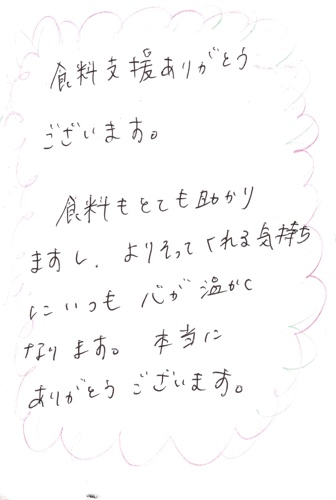 食料支援ありがとう
ございます。
食料もとても助かり
ますし、よりそってくれる気持ち
にいつも心が温かく
なります。本当に
ありがとうございます。